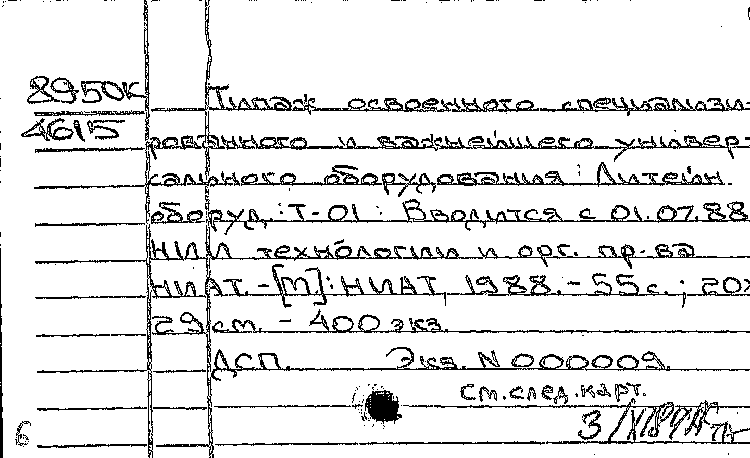 8950К
4615
Типаж освоенного специализи-
рованного и важнейшего универ-
сального оборудования: Литейн.
оборуд.: Т-01: Вводится с 01.07.88
НИИ технологии и орг. пр-ва
НИАТ.-[М]: НИАТ, 1988.-55с.; 20х
29см. - 400 экз.
ДСП. Экз. N 000009.
см. след. карт.
6